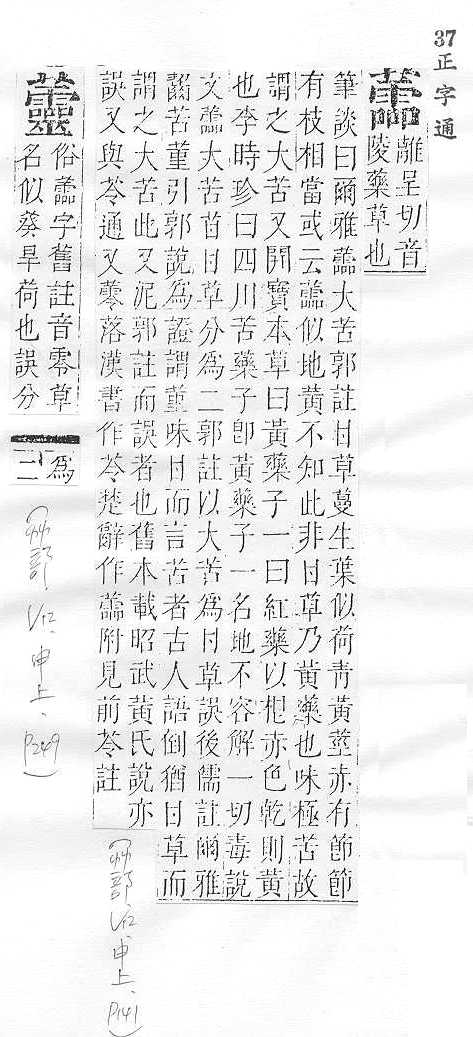 37正字通
蘦
離呈切音
陵藥草也
筆談曰爾雅蘦大苦郭註甘草蔓生葉似荷青黃莖赤有節節
有枝相當或云蘦似地黃不知此非甘草乃黃藥也味極苦故
謂之大苦又開寶本草曰黃藥子一曰紅藥以柤赤色乾則黃
也李時珍曰四川苦藥子卽黃藥子一名地不容解一切毒說
文蘦大苦苷甘草分爲二郭註以大苦爲甘草誤後儒註爾雅
齧苦堇引郭說爲證謂堇味甘而言苦者古人語倒猶甘草而
謂之大苦此又泥郭註而誤者也舊本載昭武黃氏說亦
誤又與苓通又蕶落漢書作苓楚辭作蘦附見前苓註
(艸部、V12、申上、P141)
俗蘦字舊註音零草
名似葵旱荷也誤分
爲
二
(艸部、V12、申上、P249)